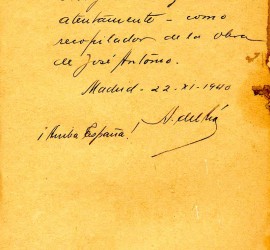 atentamente - como
recopilador de la obra
de José Antonio.
Madrid - 22 - XI - 1940
¡Arriba España!
A. del Río